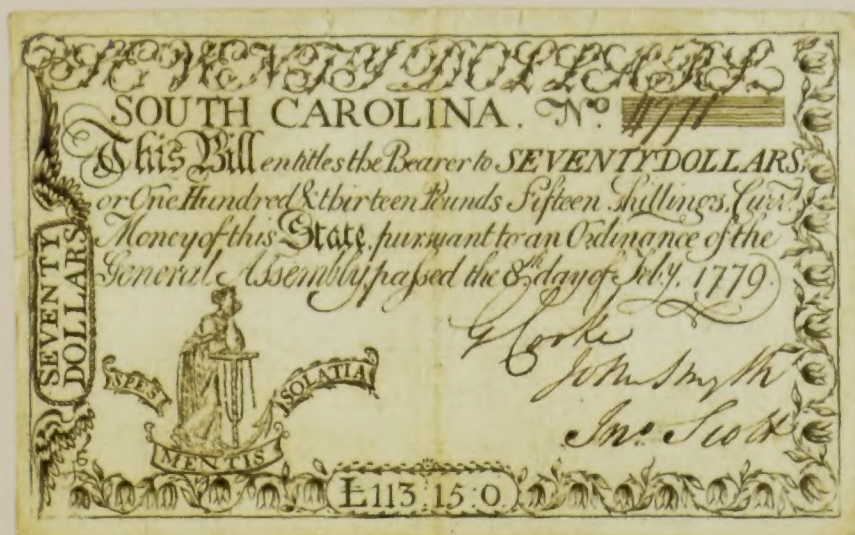 SEVENTY DOLLARS
SOUTH CAROLINA. No. 4771
This Bill entitles the Bearer to SEVENTY DOLLARS,
or One Hundred & thirteen Pounds Fifteen Shillings, Curr.t
Money of this State, pursuant to an Ordinance of the
General Assembly, passed the 8th day of Feb.y. 1779.
SEVENTY
DOLLARS
G Cooke
John Smyth
Jno. Scott
SPES
MENTIS
SOLATIA
£113:15:0